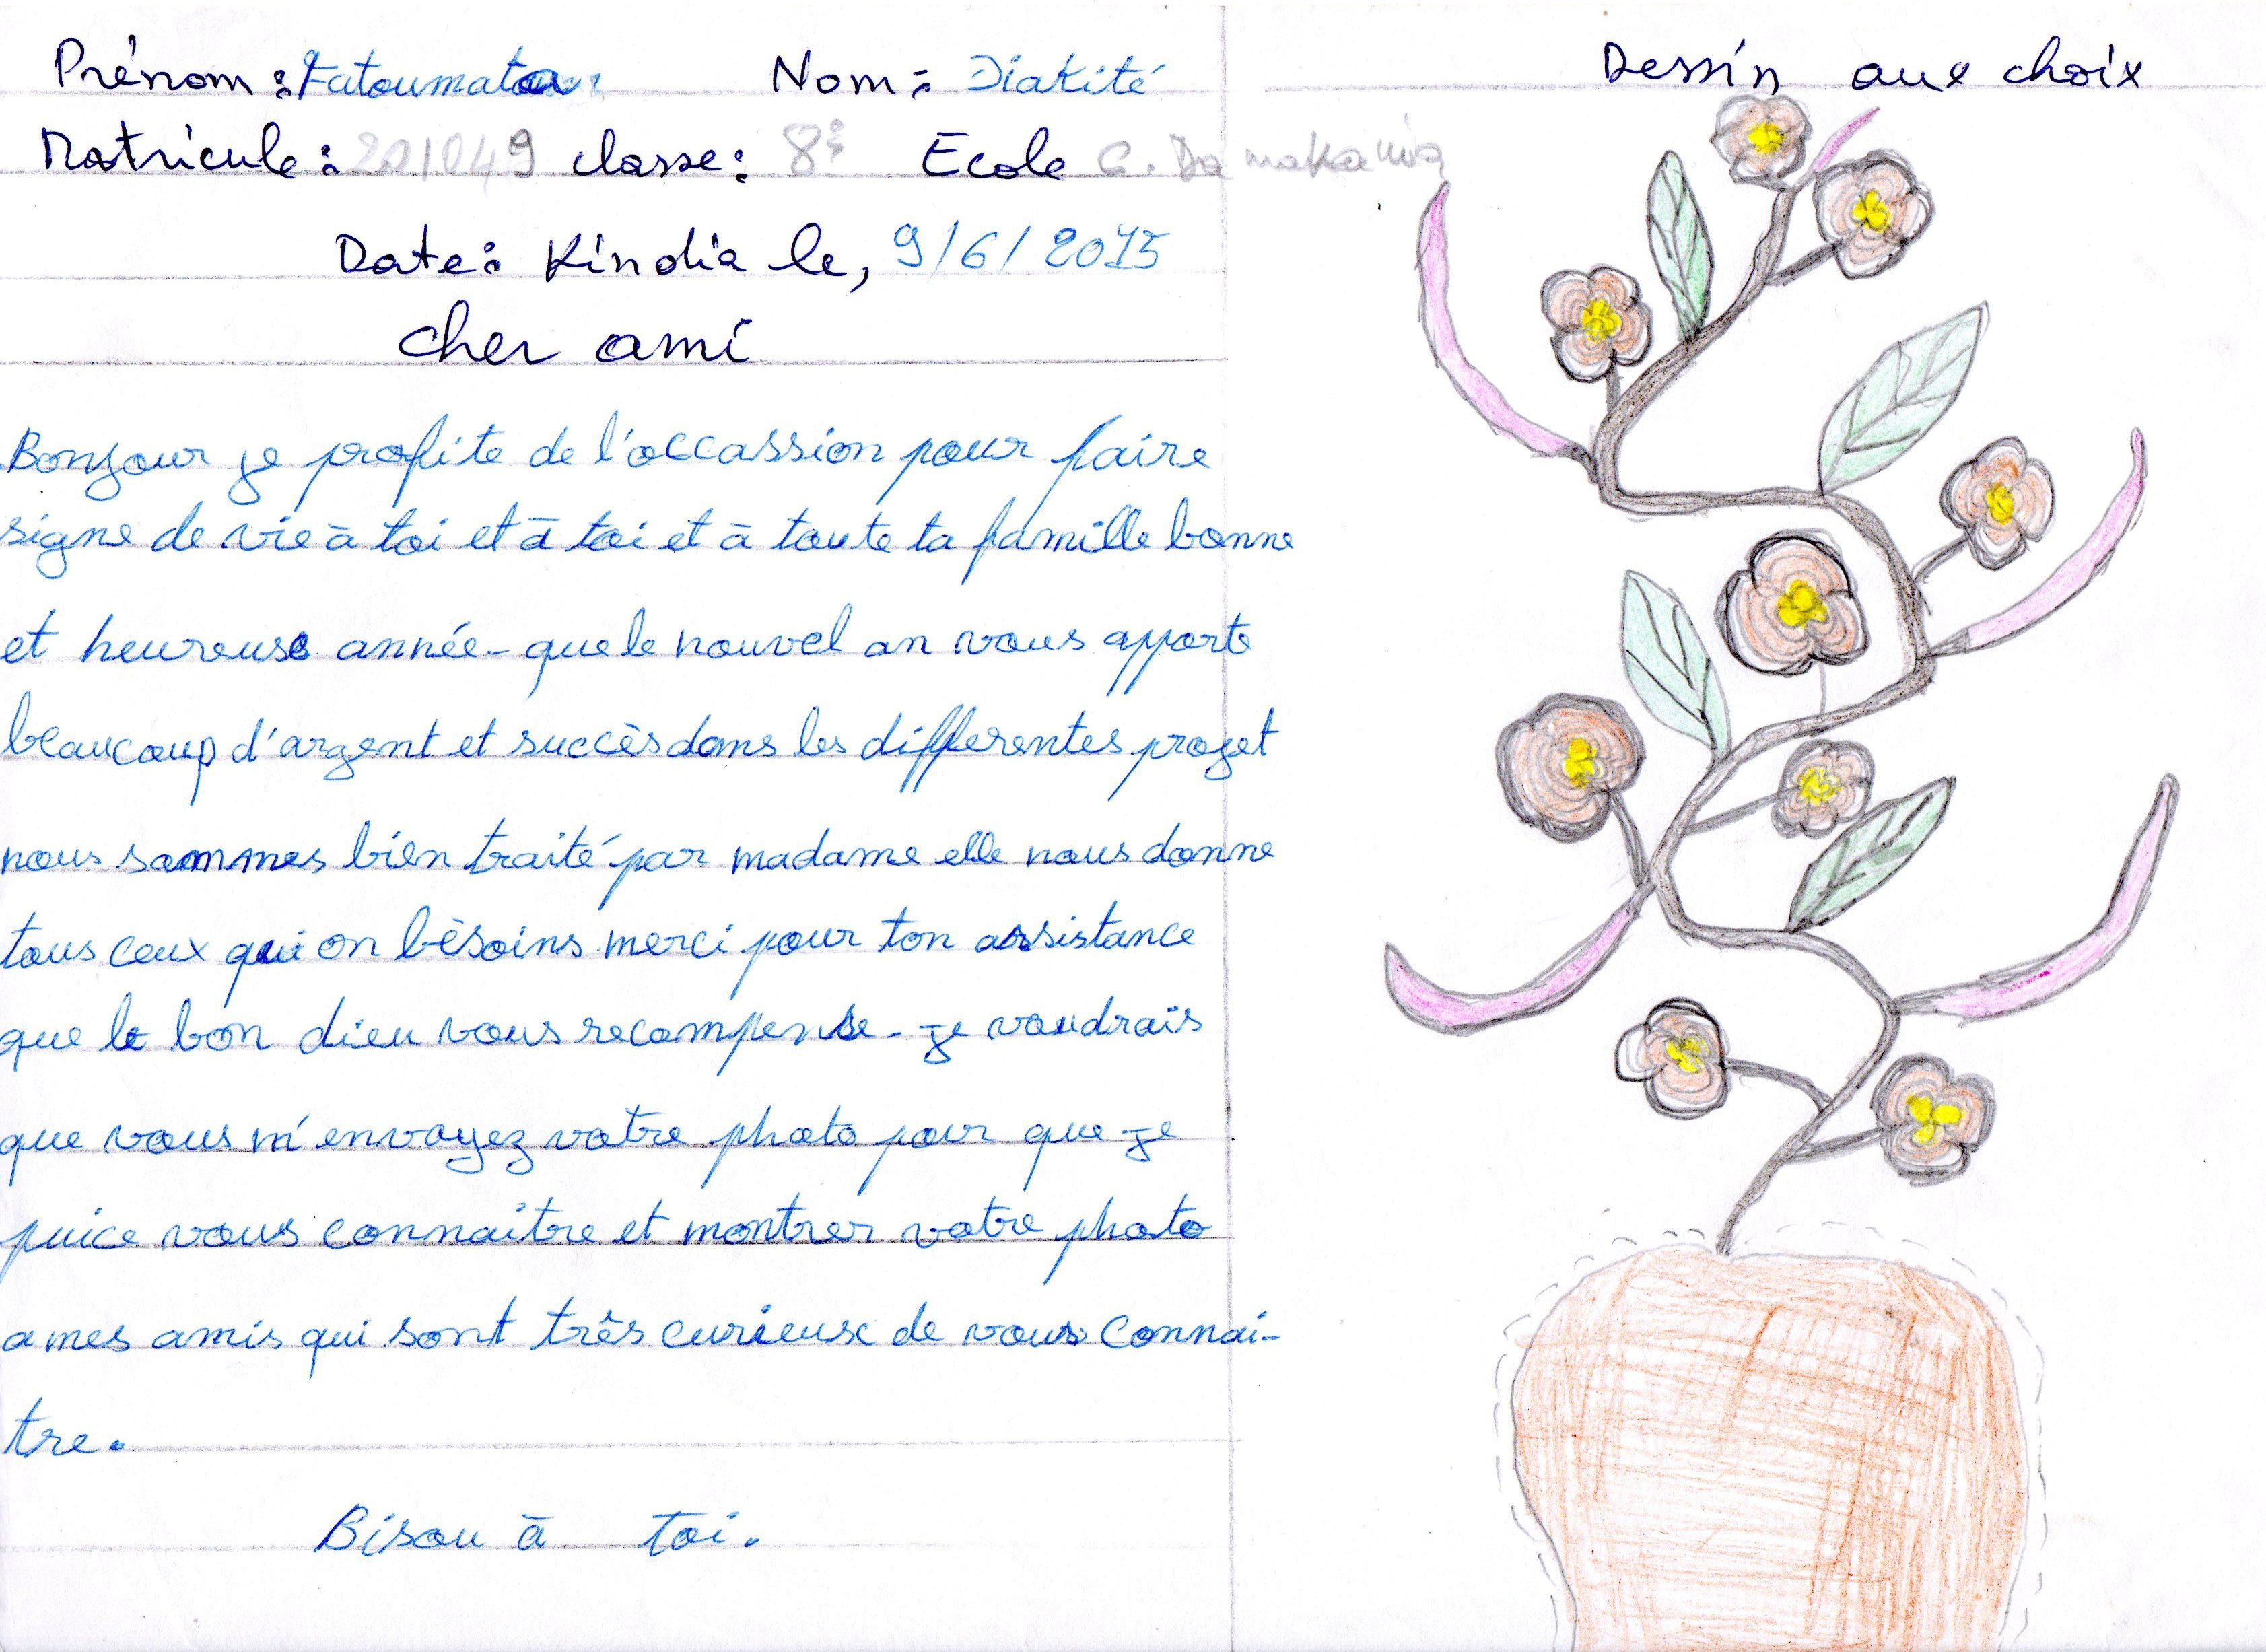 Prénom: Fatoumata Nom: Diakité
Matricule: 201049 classe: 8è Ecole C. Damakania
Date: Kindia le, 9/6/2015
cher ami
Bonjour je profite de l'occassion pour faire
signe de vie à toi et à toi et à toute ta famille bonne
et heureuse année - que le nouvel an vous apporte
beaucoup d'argent et succès dans les differentes projet
nous sommes bien traité par madame elle nous donne
tous ceux qui on bèsoins merci pour ton assistance
que le bon dieu vous recompense - je voudrais
que vous m'envoyez votre photo pour que je
puice vous connaitre et montrer votre photo
a mes amis qui sont très curieuse de vous connai-
tre.
Bisou à toi.
Dessin aux choix